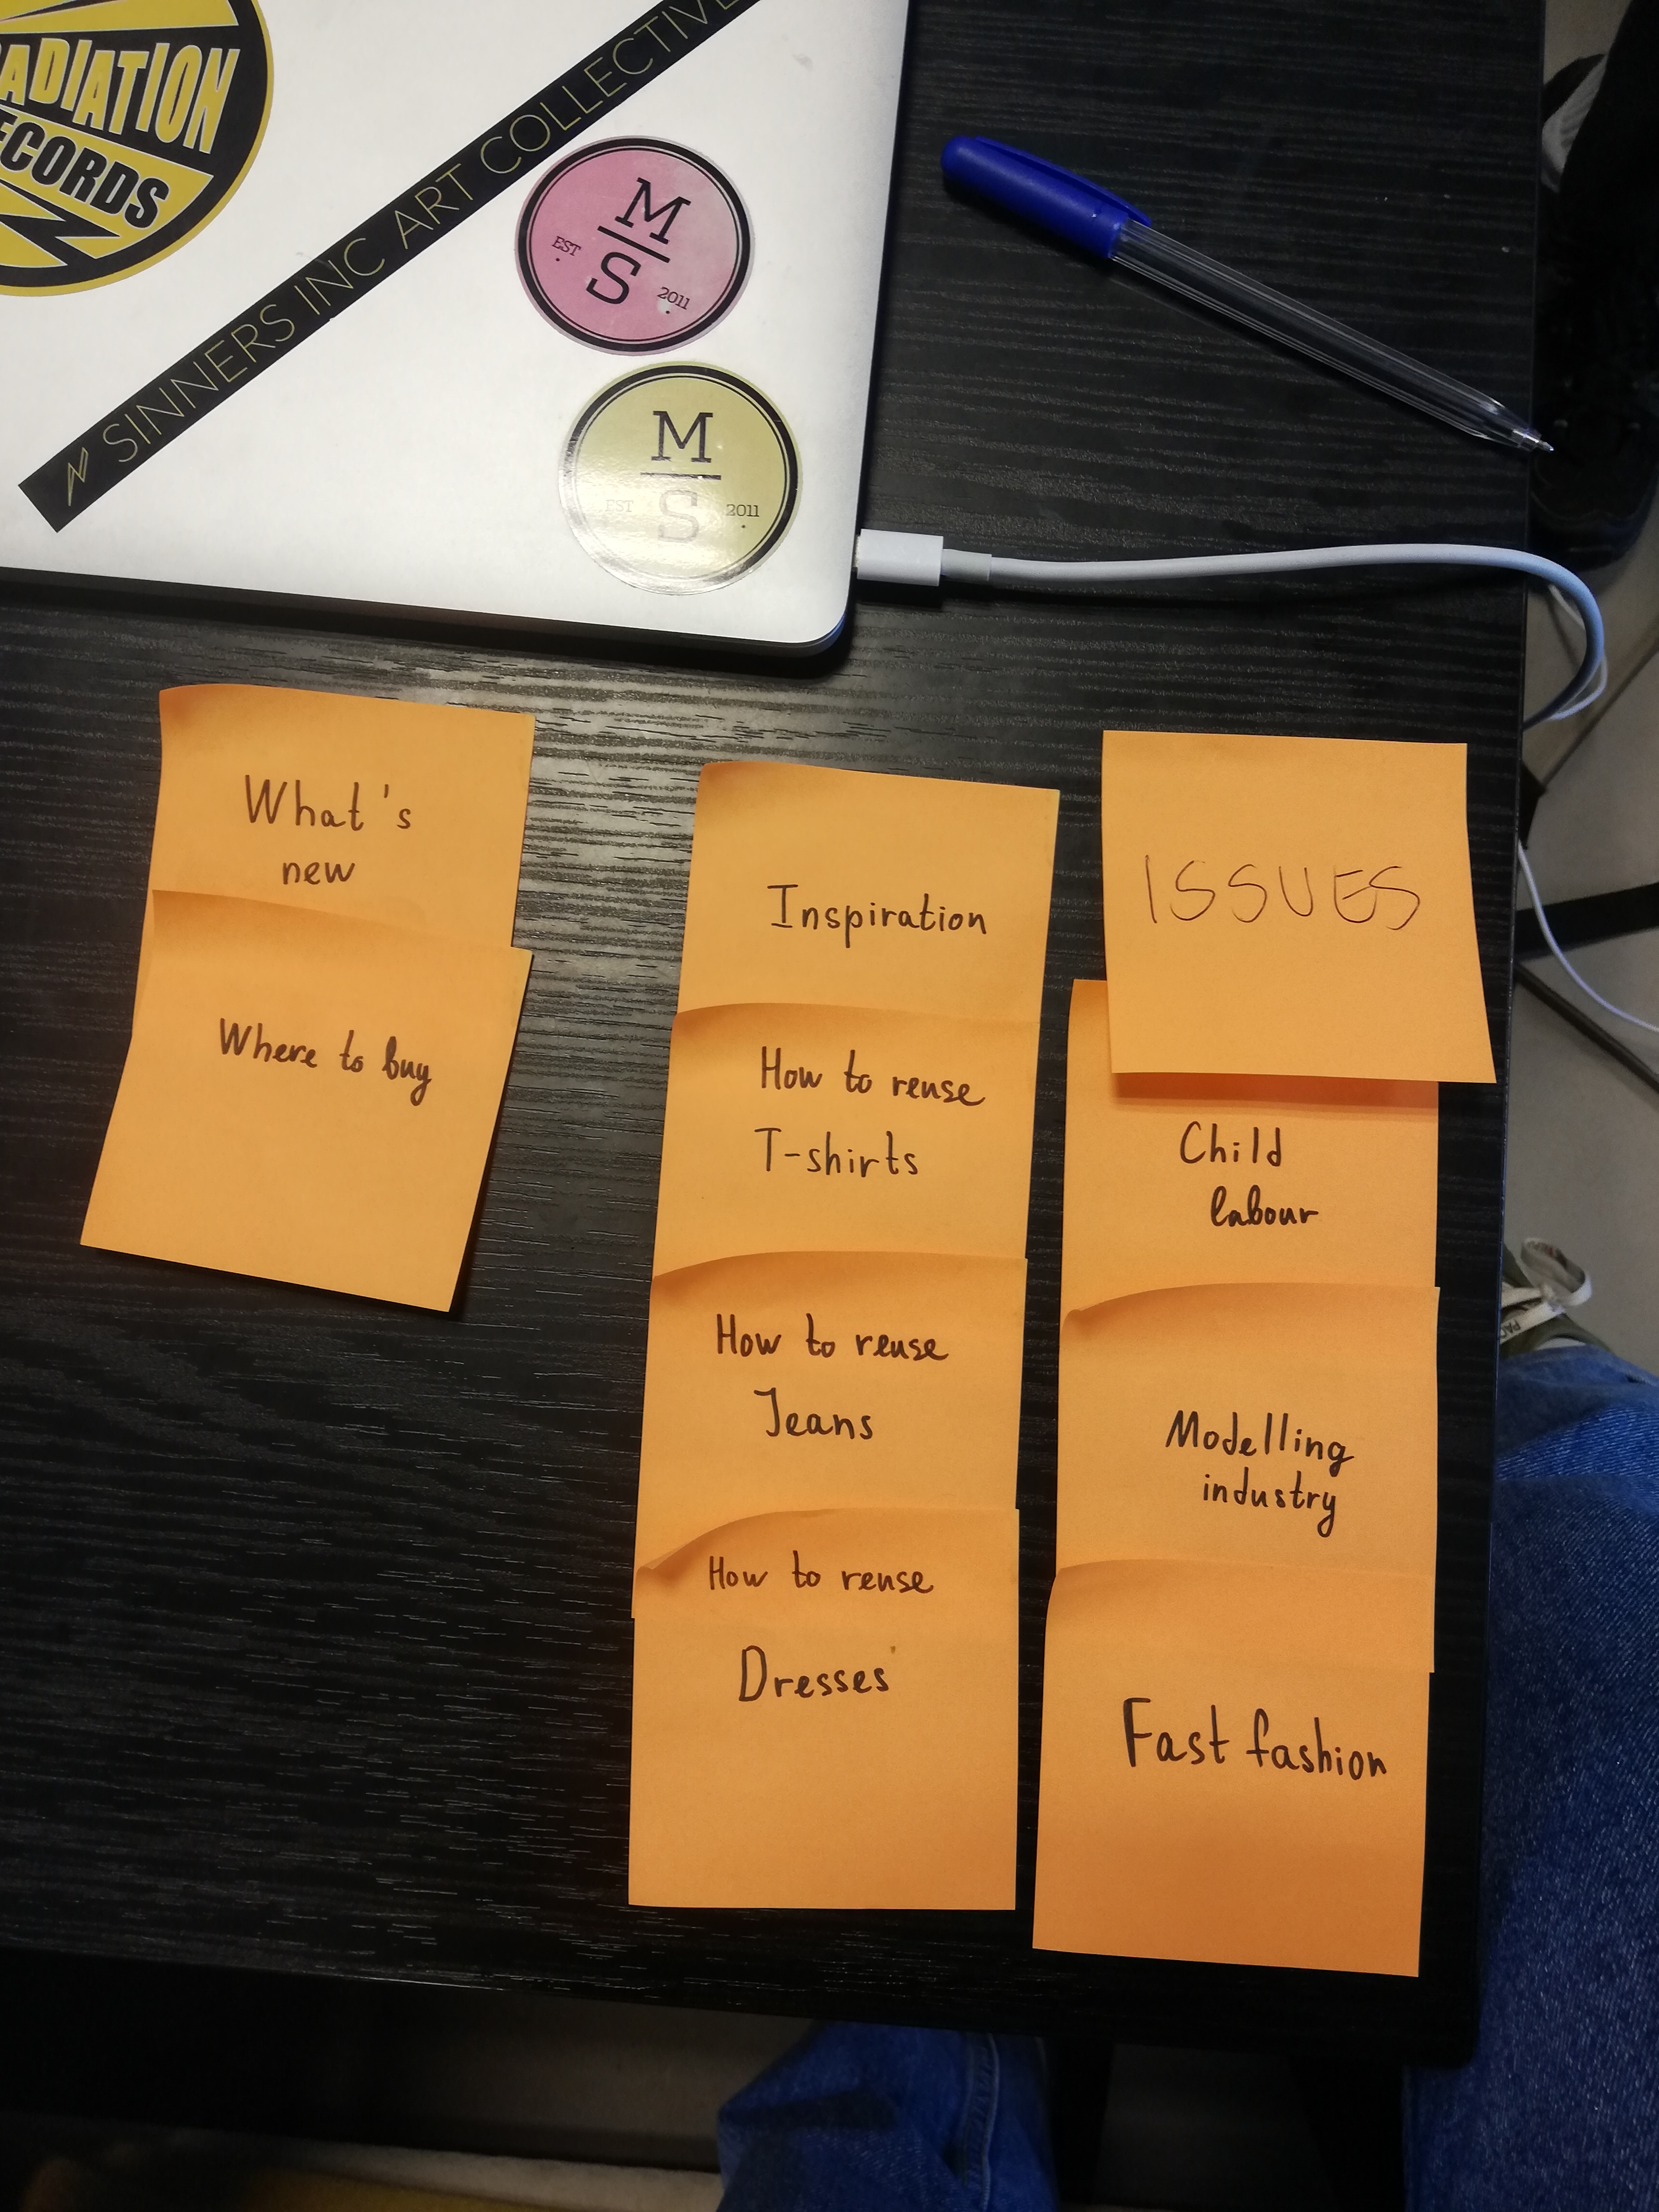 RADIATION
RECORDS
SINNERS INC ART COLLECTIVE
M
S
EST
2011
M
S
EST
2011
What's
new
Where to buy
Inspiration
How to reuse
T-shirts
How to reuse
Jeans
How to reuse
Dresses
ISSUES
Child
labour
Modelling
industry
Fast fashion